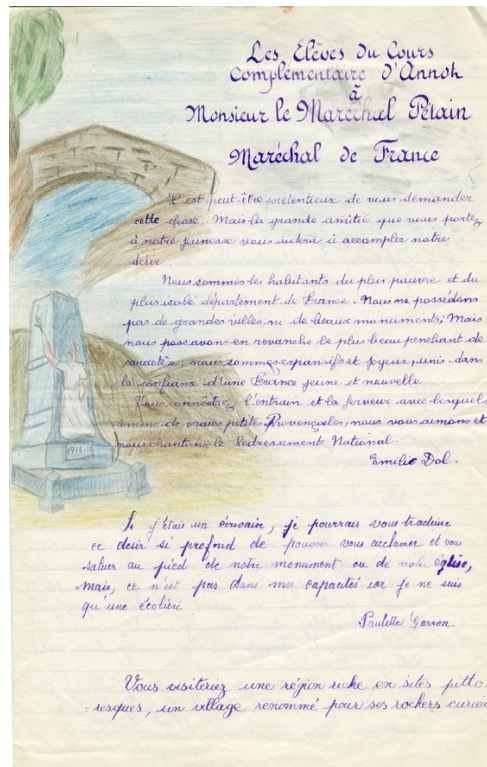 Les Elèves du Cours
Complémentaire d'Annot
à
Monsieur le Maréchal Pétain
Maréchal de France
C'est peut-être prétentieux de vous demander
cette chose. Mais la grande amitié que vous portez
à notre jeunesse vous aidera à accomplir notre
désir.
Nous sommes les habitants du plus pauvre et du
plus isolé département de France. Nous ne possédons
pas de grandes villes, ni de beaux monuments; Mais
nous possédons en revanche le plus beau penchant de
caractère, nous sommes expansifs et joyeux, unis dans
la confiance d'une France jeune et nouvelle.
Vous connaîtrez l'entrain et la ferveur avec lesquels
comme de vraies petites Provençales, nous vous aimons et
nous chantons le Redressement National.
Emilie Dol.
1914-18
Si j'étais un écrivain, je pourrais vous traduire
ce désir si profond de pouvoir vous acclamer et vous
saluer au pied de notre monument ou de notre église,
mais, ce n'est pas dans mes capacités car je ne suis
qu'une écolière.
Paulette Garron
Vous visiteriez une région riche en sites pitto-
resques, un village renommé pour ses rochers curieux